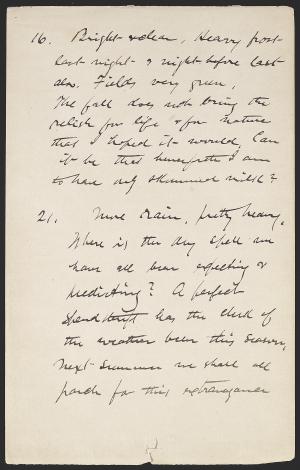 16. Bright & clear, Heavy frost
last night & night before last
also. Fields very green.
The fall does not bring the
relish for life & for nature
that I hoped it would. Can
it be that henceforth I am
to have only skimmed milk?
21. More rain, pretty heavy.
Where is the dry spell we
have all been expecting or
predicting? A perfect
spendthrift has the clerk of
the weather been this season,
next summer we shall all
parch for this extravagance